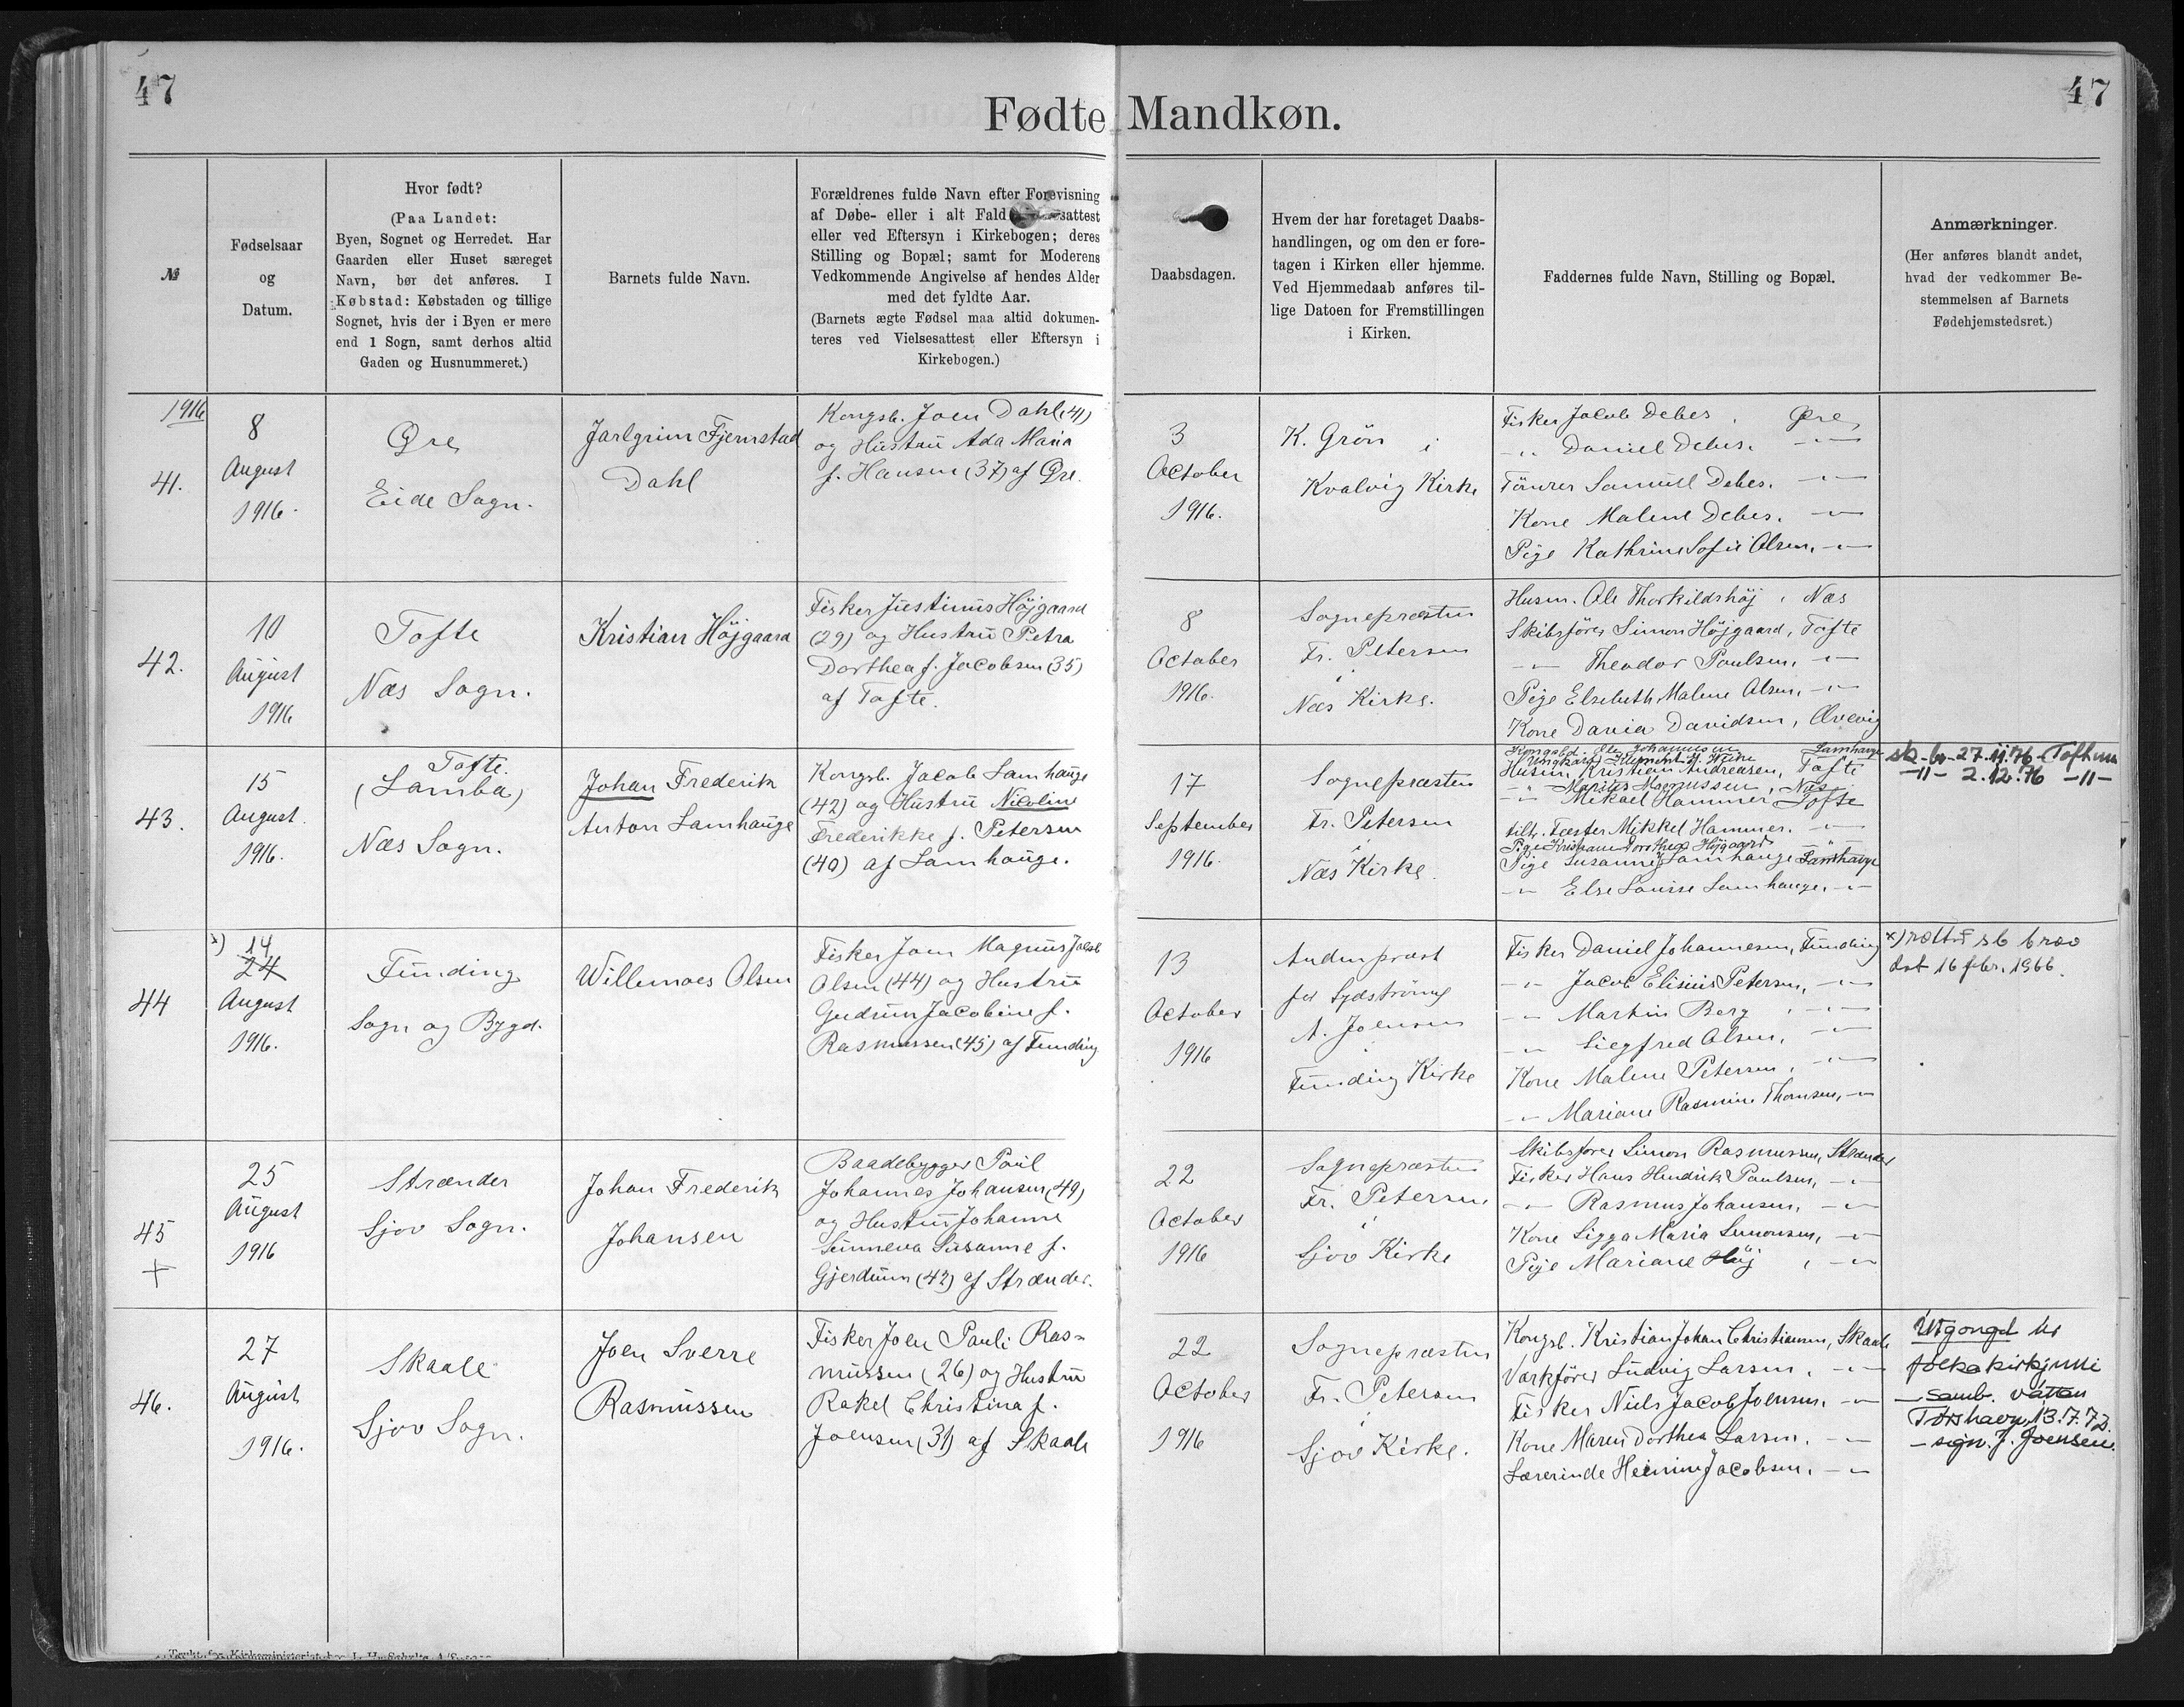 47
47
Fødte Mandkøn.
№
Fødselsaar
og
Datum.
Hvor født?
(Paa Landet:
Byen, Sognet og Herredet. Har
Gaarden eller Huset særeget
Navn, bør det anføres. I
Købstad: Købstaden og tillige
Sognet, hvis der i Byen er mere
end 1 Sogn, samt derhos altid
Gaden og Husnummeret.)
Barnets fulde Navn.
Forældrenes fulde Navn efter Forevisning
af Døbe- eller i alt Fald
eller ved Eftersyn i Kirkebogen; deres
Stilling og Bopæl; samt for Moderens
Vedkommende Angivelse af hendes Alder
med det fyldte Aar.
(Barnets ægte Fødsel maa altid dokumen-
teres ved Vielsesattest eller Eftersyn i
Kirkebogen.)
Daabsdagen.
Hvem der har foretaget Daabs-
handlingen, og om den er fore-
tagen i Kirken eller hjemme.
Ved Hjemmedaab anføres til-
lige Datoen for Fremstillingen
i Kirken.
Faddernes fulde Navn, Stilling og Bopæl.
Anmærkninger.
(Her anføres blandt andet,
hvad der vedkommer Be-
stemmelsen af Barnets
Fødehjemstedsret.)
1916
41.
8
August
1916.
Øre
Eide Sogn.
Jarlgrim Fjernstad
Dahl
Kongsb. Joen Dahl (41)
og Hustru Ada Maria
f. Hansen (37) af Øre.
3
October
1916.
K. Grön i
Kvalvig Kirke
Fisker Jacob Debes, Øre,
-"- Daniel Debes. -"-
Tömrer Samuel Debes. -"-
Kone Malene Debes. -"-
Pige Kathrine Sofie Olsen, -"-
42.
10
August
1916
Tofte
Næs Sogn.
Kristian Höjgaard
Fisker Justinus Höjgaard
(29) og Hustru Petra
Dorthea f. Jacobsen (35)
af Tofte.
8
October
1916.
Sognepræsten
Fr. Petersen
i
Næs Kirke.
Husm. Ole Thorkildshöj, Næs
Skibsförer Simon Höjgaard, Tofte
-"- Theodor Poulsen, -"-
Pige Elsebeth Malene Olsen, -"-
Kone Davia Davidsen,
43.
15
August.
1916.
Tofte.
(Lamba)
Næs Sogn.
Johan Frederik
Anton Lamhauge
Kongsb. Jacob Lamhauge
(42) og Hustru Nicoline
Frederikke f. Petersen
(40) af Lamhauge.
17
September
1916.
Sognepræsten
Fr. Petersen
i
Næs Kirke.
Kongsbd. Ole Johannesen Lamhauge
Ungkarl Klement
Husm. Kristian Andreasen, Tofte
-"- Marius Magnussen, Næs
-"- Mikael Hammer Tofte
Fæster Mikkel Hammer. -"-
Pige Kristiane Dorthea Höjgaard "
Pige Susanne Lamhauge Lamhauge
-"- Else Louise Lamhauge. -"-
sk. br. 27.11.76 Tofthun
-"- 2.12.76 -"-
44
x) 14
24
August
1916.
Funding
Sogn og Bygd.
Willemoes Olsen
Fisker Joen Magnus Jacob
Olsen (44) og Hustru
Gudrun Jacobine f.
Rasmussen (45) af Funding
13
October
1916
Andenpræst
A. Joensen
i
Funding Kirke
Fisker Daniel Johannesen, Funding
-"- Jacob Elisius Petersen, -"-
-"- Martin Berg, -"-
-"- Siegfred Olsen, -"-
Kone Malene Petersen, -"-
-"- Mariane Rasmine Thomsen, -"-
x) rættað sb bræv
dat 16 febr. 1966.
45
+
25
August
1916
Strænder
Sjov Sogn.
Johan Frederik
Johansen
Baadebygger Poul
Johannes Johansen (49)
og Hustru Johanne
Sunneva Susanne f.
Gjerdum (42) af Strænder.
22
October
1916
Sognepræsten
Fr. Petersen
i
Sjov Kirke
Skibsförer Simon Rasmussen, Strænder
Fisker Hans Hendrik Poulsen, -"-
-"- Rasmus Johansen, -"-
Kone Sigga Maria Simonsen, -"-
Pige Mariane Höj, -"-
46.
27
August
1916.
Skaale
Sjov Sogn.
Joen Sverre
Rasmussen
Fisker Joen Pauli Ras-
mussen (26) og Hustru
Rakel Christina f.
Joensen (31) af Skaale
22
October
1916
Sognepræsten
Fr. Petersen
i
Sjov Kirke.
Kongsb. Kristian Johan Christiansen, Skaale
Værkförer Ludvig Larsen, -"-
Fisker Niels Jacob Joensen, -"-
Kone Maren Dorthea Larsen. -"-
Lærerinde Heinine Jacobsen. -"-
Útgongd úr
fólkakirkjuni
- samb. váttan
Tórshavn, 13.7.72.
- sign. J. Joensen.